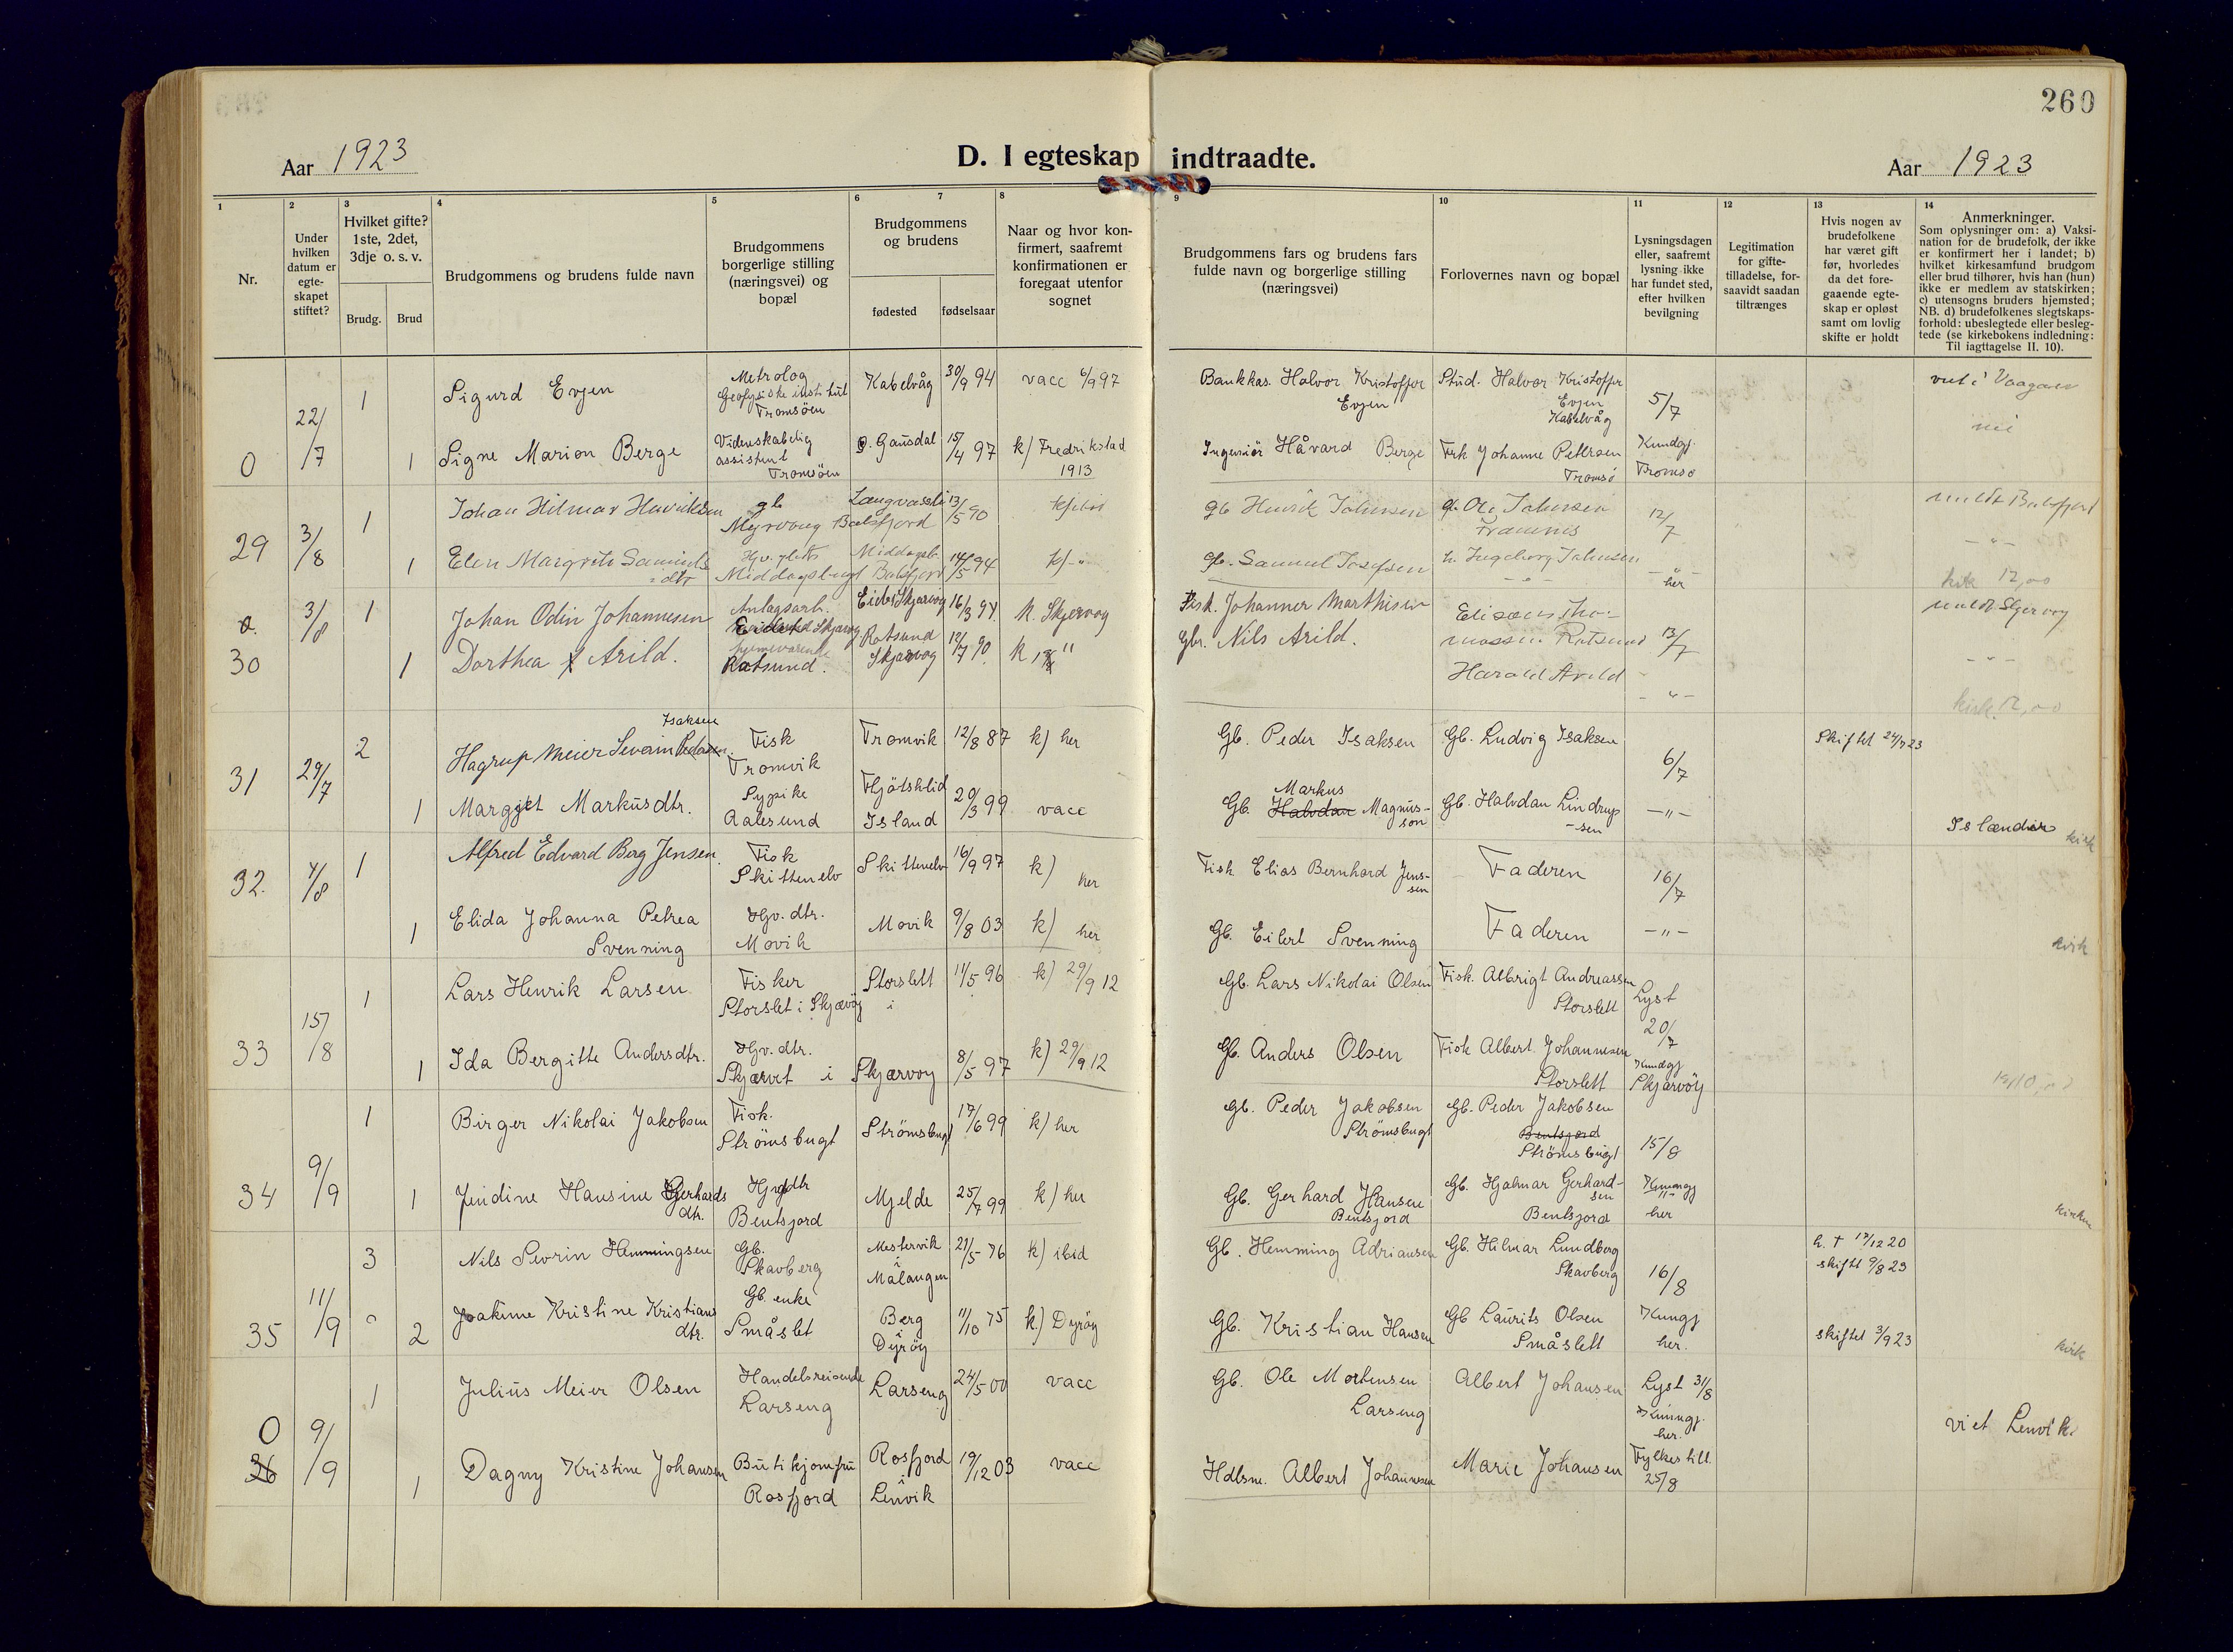 260
Aar 1923
D. I egteskap indtraadte.
Aar 1923
1
2
3
4
5
6
7
8
9
10
11
12
13
14
Nr.
Under hvilken datum er egte-skapet stiftet?
Hvilket gifte? 1ste, 2det, 3dje o. s. v.
Brudg.
Brud
Brudgommens og brudens fulde navn
Brudgommens borgerlige stilling (næringsvei) og bopæl
Brudgommens og brudens
fødested
fødselsaar
Naar og hvor kon-firmert, saafremt konfirmationen er foregaat utenfor sognet
Brudgommens fars og brudens fars fulde navn og borgerlige stilling (næringsvei)
Forlovernes navn og bopæl
Lysningsdagen eller, saafremt lysning ikke har fundet sted, efter hvilken bevilgning
Legitimation for gifte-tilladelse, for-saavidt saadan tiltrænges
Hvis nogen av brudefolkene har været gift før, hvorledes da det fore-gaaende egte-skap er opløst samt om lovlig skifte er holdt
Anmerkninger.
Som oplysninger om: a) Vaksi-nation for de brudefolk, der ikke er konfirmert her i landet; b) hvilket kirkesamfund brudgom eller brud tilhører, hvis han (hun) ikke er medlem av statskirken; c) utensogns bruders hjemsted; NB. d) brudefolkenes slegtskaps-forhold: ubeslegtede eller besleg-tede (se kirkebokens indledning: Til iagttagelse II. 10).
0 22/7
1 Sigurd Evjen
Metrolog Geofysiske institut Tromsöen
Kabelvåg 30/9 94 vacc 6/9 97
Bankkas. Halvor Kristoffer Evjen
Stud. Halvor Kristoffer Evjen Kabelvåg
5/7
viet i Vaagan
1 Signe Marion Berge
Videnskabelig assistent Tromsöen
Ö. Gausdal 15/4 97 k) Fredrikstad 1913
Ingeniör Håvard Berge
Frk Johanne Petersen Tromsö
Kundgj. Tromsö
29 3/8
1 Johan Hilmar Henriksen
gb Myrvang Balsfjord
Langvasslid 13/5 90
gb Henrik Johnsen
g. Ole Johnsen
12/7
Balsfjord
1 Elen Margrith Samuels dtr
Middagsbugt Balsfjord 14/5 94 k) -"-
gb. Samuel Josefsen
h. Ingeborg Johnsen
-"-
her
12,00
0. 30 3/8
1 Johan Odin Johannesen
Anlagsarb. Eidet Skjærvøy
Eidet Skjærvøy 16/3 94. k. Skjervøy
Fisk. Johannes Marthisen
Elisæus Tho-massen Rotsund
13/7
Skjervøy
1 Dorthea Arild.
hjemmeværende Rotsund.
Rotsund Skjærvøy 12/7 90 k "
Gbr. Nils Arild.
Harald Arild
- " -
-"-
kirk. 12,00
31 29/7
2 Hagrup Meier Sevain Pedersen Isaksen
Fisk Tromvik
Tromvik 12/8 87 k) her
Gb. Peder Isaksen
Gb. Ludvig Isaksen
6/7
Skiftet 24/7 23
1 Margret Markusdtr.
Sypike Aalesund
Fljótshlid Island 20/3 99 vacc
Gb. Halvdan Markus Magnus-son
Gb. Halvdan Lindrup-sen
-"-
Islænder
kirk
32. 4/8
1 Alfred Edvard Berg Jensen.
Fisk Skittenelv
Skittenelv 16/9 97 k) her
Fisk Elias Bernhard Jens-sen
Faderen
16/7
1 Elida Johanna Petrea Svenning
Hgv. dtr. Movik
Movik 9/8 03 k) her
Gb. Eilert Svenning
Faderen
-"-
kirk
33 15/8
1 Lars Henrik Larsen
Fisker Storslet i Skjærvöy
Storslett i 11/5 96 k) 29/9 12
Gb. Lars Nikolai Olsen
Fisk. Albrigt Andreassen Storslett
Lyst 20/7
1 Ida Bergitte Andersdtr.
Hgv. dtr. Skjæret i
Skjærvoy 8/5 97 k) 29/9 12
Gb. Anders Olsen
Fisk Albert Johannesen Storslett
Kundgj Skjærvöy
34 9/9
1 Birger Nikolai Jakobsen
Fisk. Strömsbugt
Strömsbugt 17/6 99 k) her
Gb. Peder Jakobsen Strömsbugt
Gb. Peder Jakobsen Bentsjord Strömsbugt
15/8
1 Jendine Hansine Gerhards dtr.
Hjvgdtr Bentsjord
Mjelde 25/7 99 k) her
Gb. Gerhard Hansen Bentsjord
Gb. Hjalmar Gerhard-sen Bentsjord
Kunngj her
kirken
35 11/9
3 Nils Sevrin Hemmingsen
Gb. Skavberg
Mestervik i Målangen 21/5 76 k) ibid
Gb. Hemming Adriansen
Gb. Hilmar Lundberg Skavberg
16/8
h. † 17/12 20 skiftet 9/8 23
2 Joakime Kristine Kristians dtr.
Gb. enke Småslet
Berg i Dyröy 11/10 75 k.) Dyröy
Gb. Kristian Hansen
Gb Laurits Olsen Småslett
Kungj her.
skiftet 3/9 23
kirk
0 36 9/9
1 Julius Meier Olsen
Handelsreisende Larseng
Larseng 24/5 00 vacc
Gb. Ole Mortensen Larseng
Albert Johansen
Lyst 31/8 Kunngj. her.
viet Lenvik
1 Dagny Kristine Johansen
Butikjomfru Rosfjord
Rosfjord i Lenvik 19/12 03 vacc
Hdlsm. Albert Johannesen
Marie Johansen
Fylkestill. 25/8